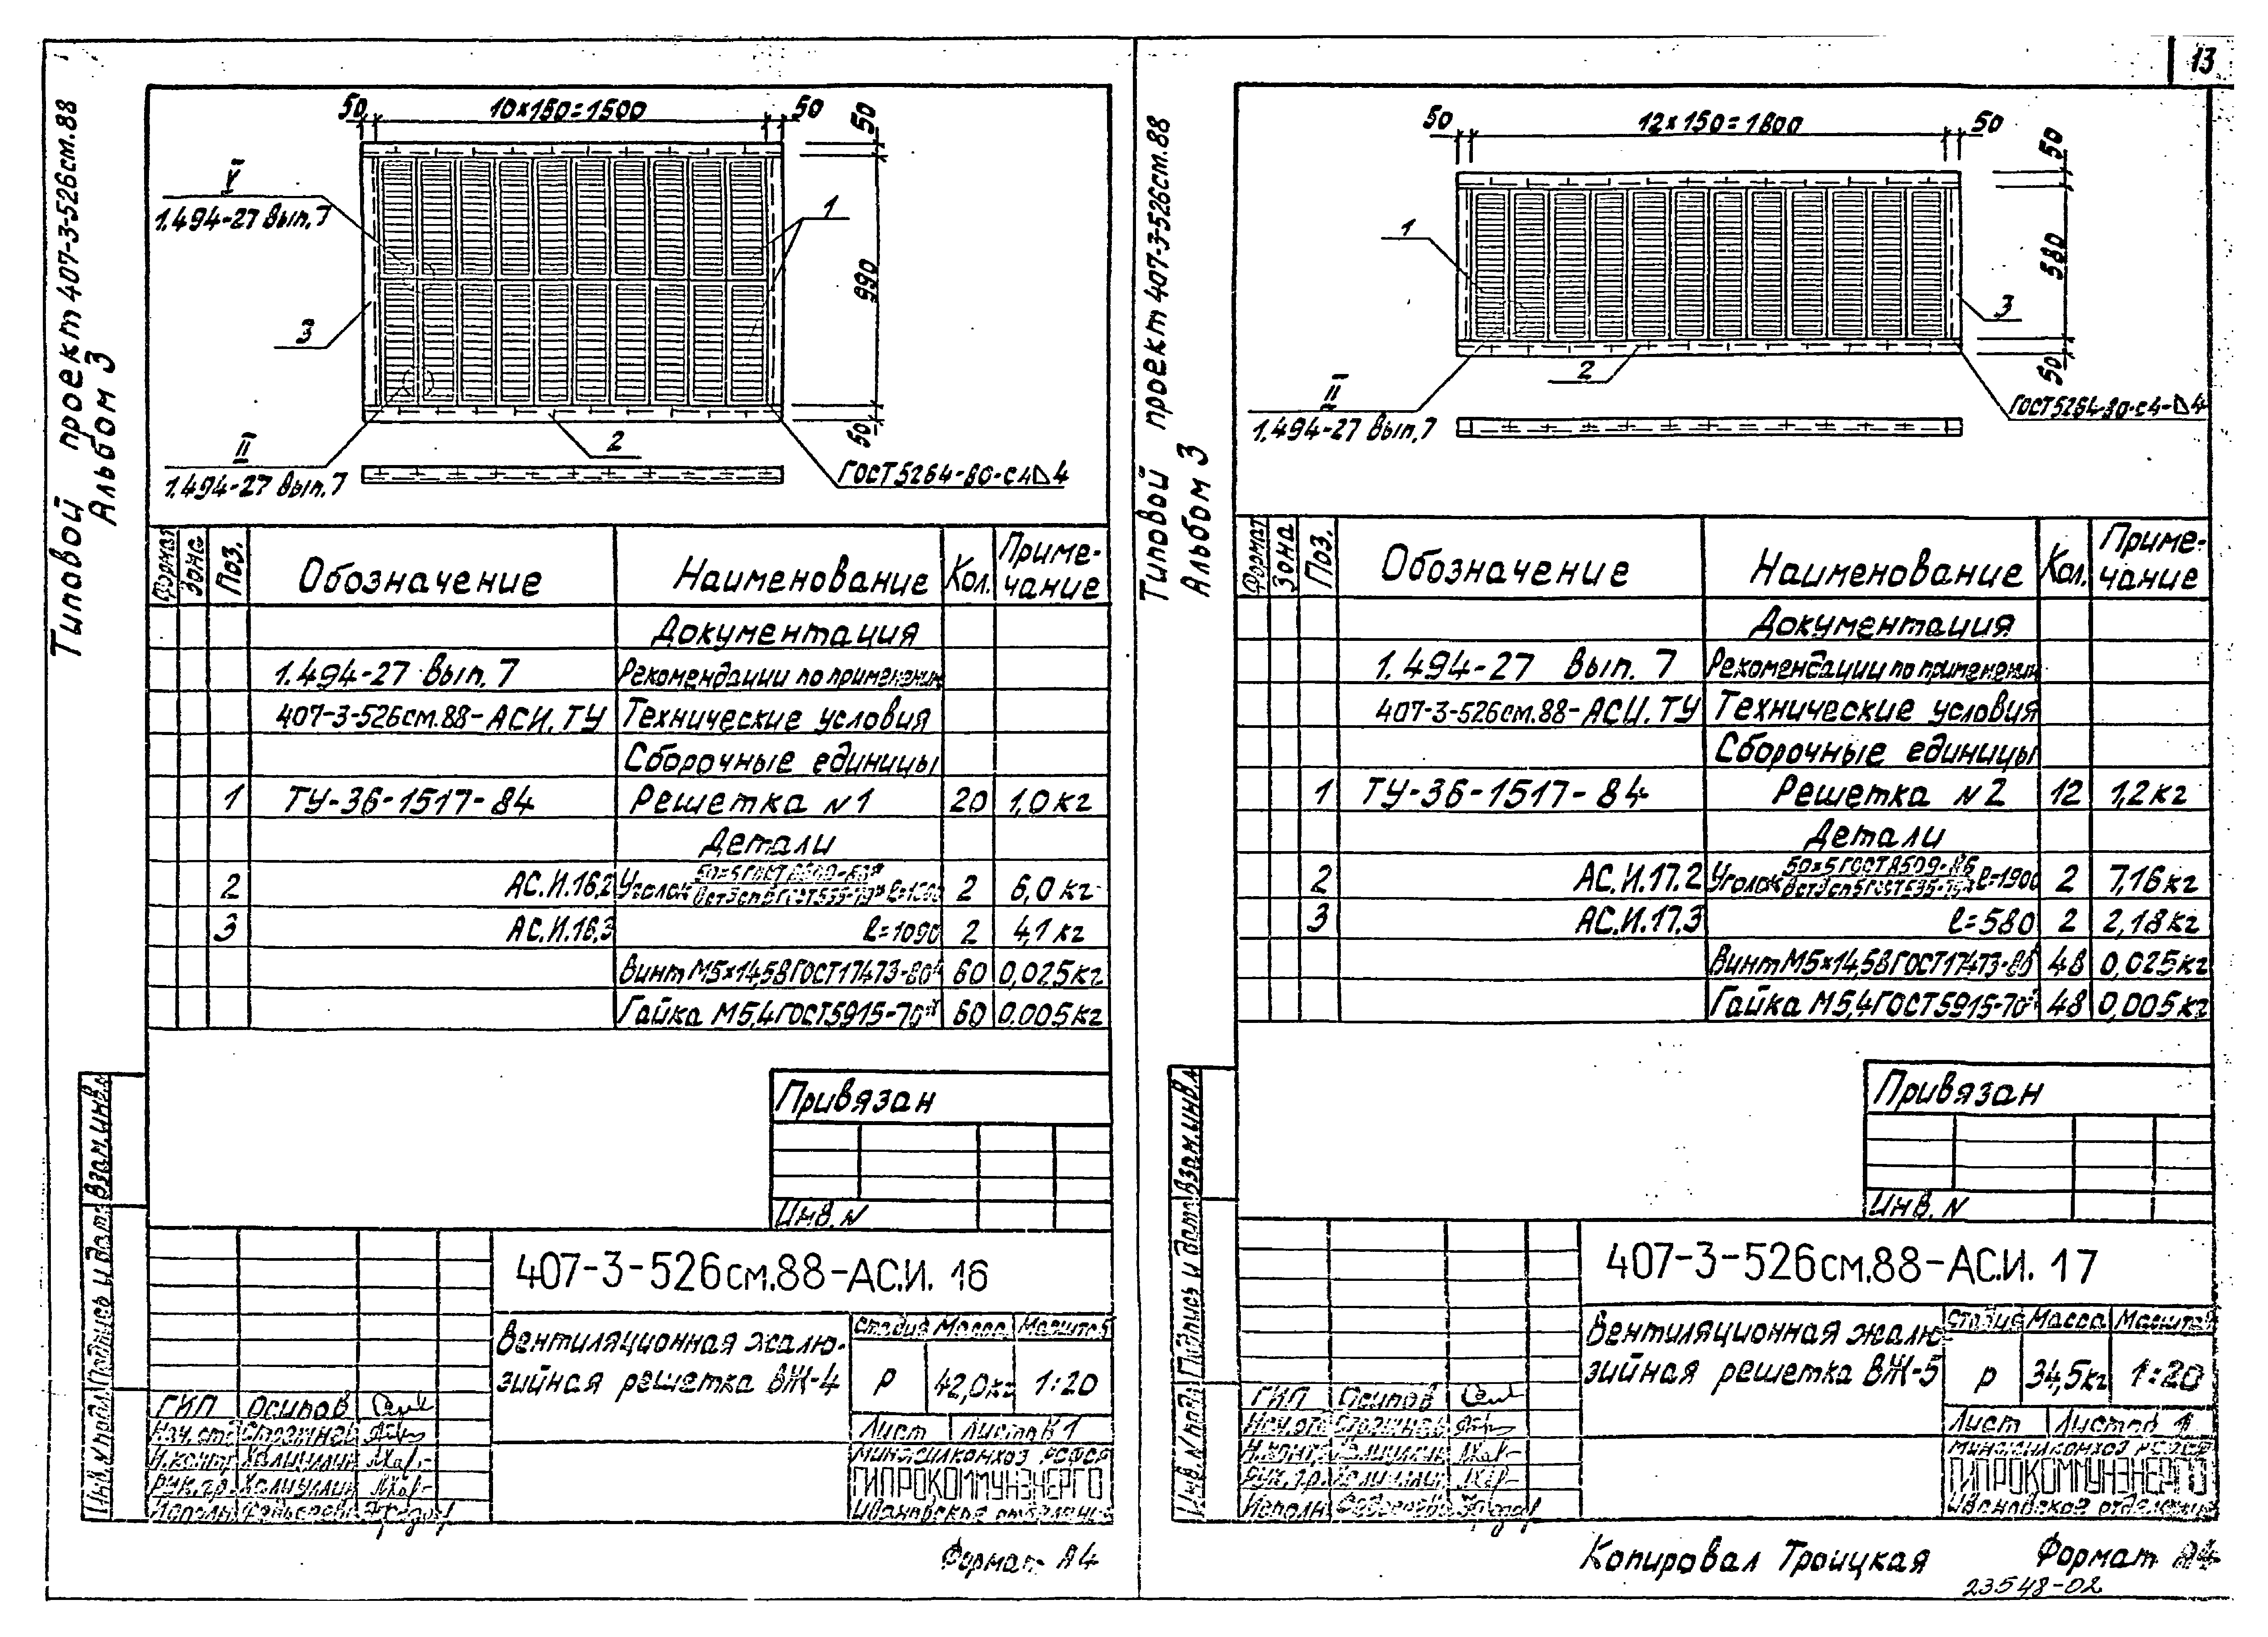 13
Типовой проект 407-3-526см.88
Альбом 3
50 10×150=1500 50
50
V
1.494-27 Вып.7
1
990
3
II
1.494-27 Вып.7
2
50
ГОСТ 5264-80-С4 4
Формат Зона Поз. Обозначение Наименование Кол. Приме-
чание
Документация
1.494-27 Вып.7 Рекомендации по применению
407-3-526см.88-АС.И.ТУ Технические условия
Сборочные единицы
1 ТУ-36-1517-84 Решетка N1 20 1,0кг
Детали
2 АС.И.16.2 Уголок 2 6,0кг
3 АС.И.16.3 ℓ=1090 2 4,1кг
Винт М5×14,58 ГОСТ17473-80 60 0,025кг
Гайка М5,4 ГОСТ5915-70* 60 0.005кг
Привязан
Инв.N
407-3-526см.88-АС.И. 16
Вентиляционная жалю-
зийная решетка ВЖ-4
Стадия Масса Масштаб
Р 42,0кг 1:20
Лист Листов 1
ГИП Осипов
Нач.отд
Н.контр Халиуллин
Рук.гр. Халиуллин
Исполн
Минжилкомхоз РСФСР
ГИПРОКОММУНЭНЕРГО
Ивановское отделение
Взам.инв.N
Подпись и дата
Инв.N подл.
Формат А4
Типовой проект 407-3-526см.88
Альбом 3
50 12×150=1800 50
50
1
580
3
2
II
1.494-27 Вып.7
50
ГОСТ5264-80-С4- 4
Формат Зона Поз. Обозначение Наименование Кол. Приме-
чание
Документация
1.494-27 Вып. 7 Рекомендации по применению
407-3-526см.88-АС.И.ТУ Технические условия
Сборочные единицы
1 ТУ-36-1517-84 Решетка N2 12 1,2кг
Детали
2 АС.И.17.2 Уголок 50×5 ГОСТ 8509-86 ℓ=1900 2 7,16кг
3 АС.И.17.3 ℓ=580 2 2,18кг
Винт М5×14,58 ГОСТ17473-80 48 0,025кг
Гайка М5,4 ГОСТ5915-70* 48 0,005кг
Привязан
Инв.N
407-3-526см.88-АС.И. 17
Вентиляционная жалю-
зийная решетка ВЖ-5
Стадия Масса Масштаб
Р 34,5кг 1:20
Лист Листов 1
ГИП Осипов
Нач.отд
Н.контр
Рук.гр. Халиуллин
Исполн
Минжилкомхоз РСФСР
ГИПРОКОММУНЭНЕРГО
Ивановское отделение
Взам.инв.N
Подпись и дата
Инв.N подл.
Копировал Троицкая Формат А4
23548-02